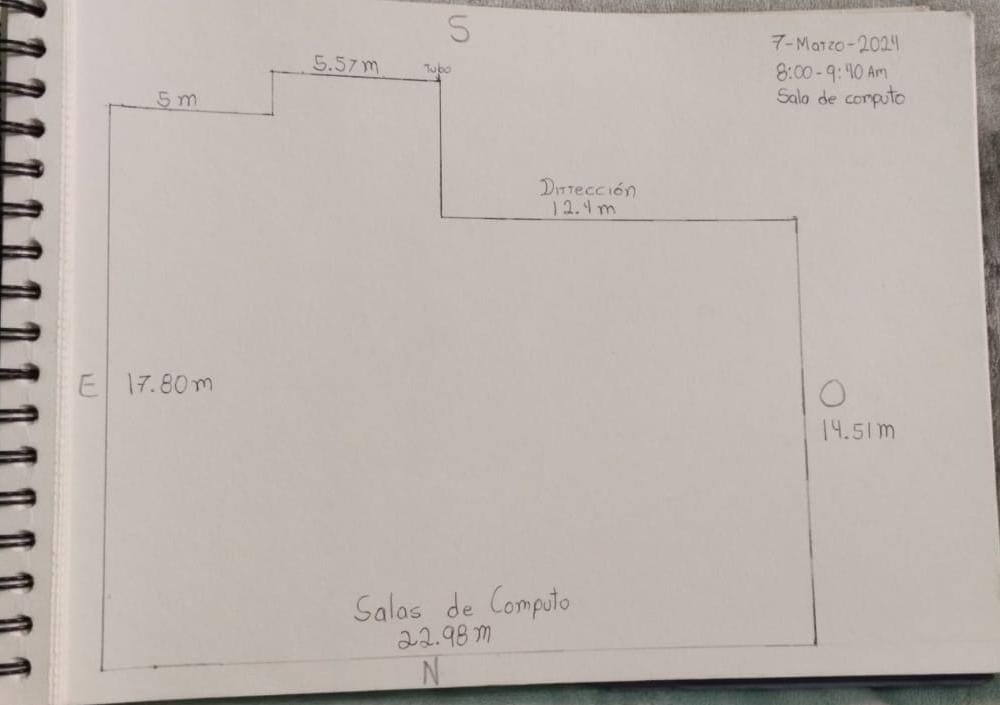 S
7-Marzo-2024
8:00-9:40 Am
Sala de computo
5.57m
Tubo
5 m
Dirrección
12.4 m
E
17.80m
O
14.51m
Salas de Computo
22.98m
N